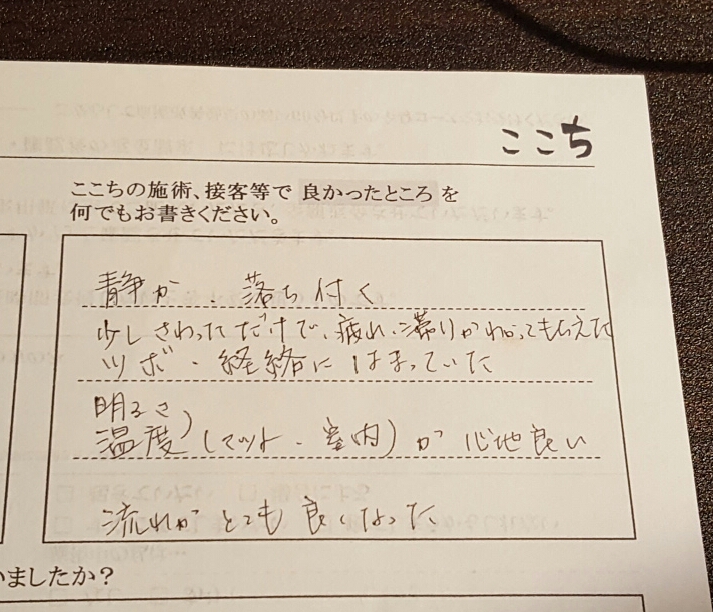 ここち
ここちの施術、接客等で 良かったところ を
何でもお書きください。
静か、落ち付く
少しさわっただけで、疲れ、滞りがわかってもらえた
ツボ・経絡にはまっていた
明るさ
温度)(マット・室内)が 心地良い
流れがとても良くなった
いましたか?